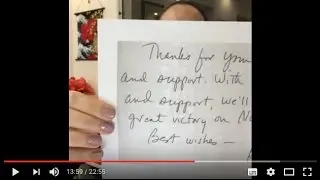 Thanks for your
and support. With
and support, we'll
great victory on N
Best wishes —
13:59 / 22:55